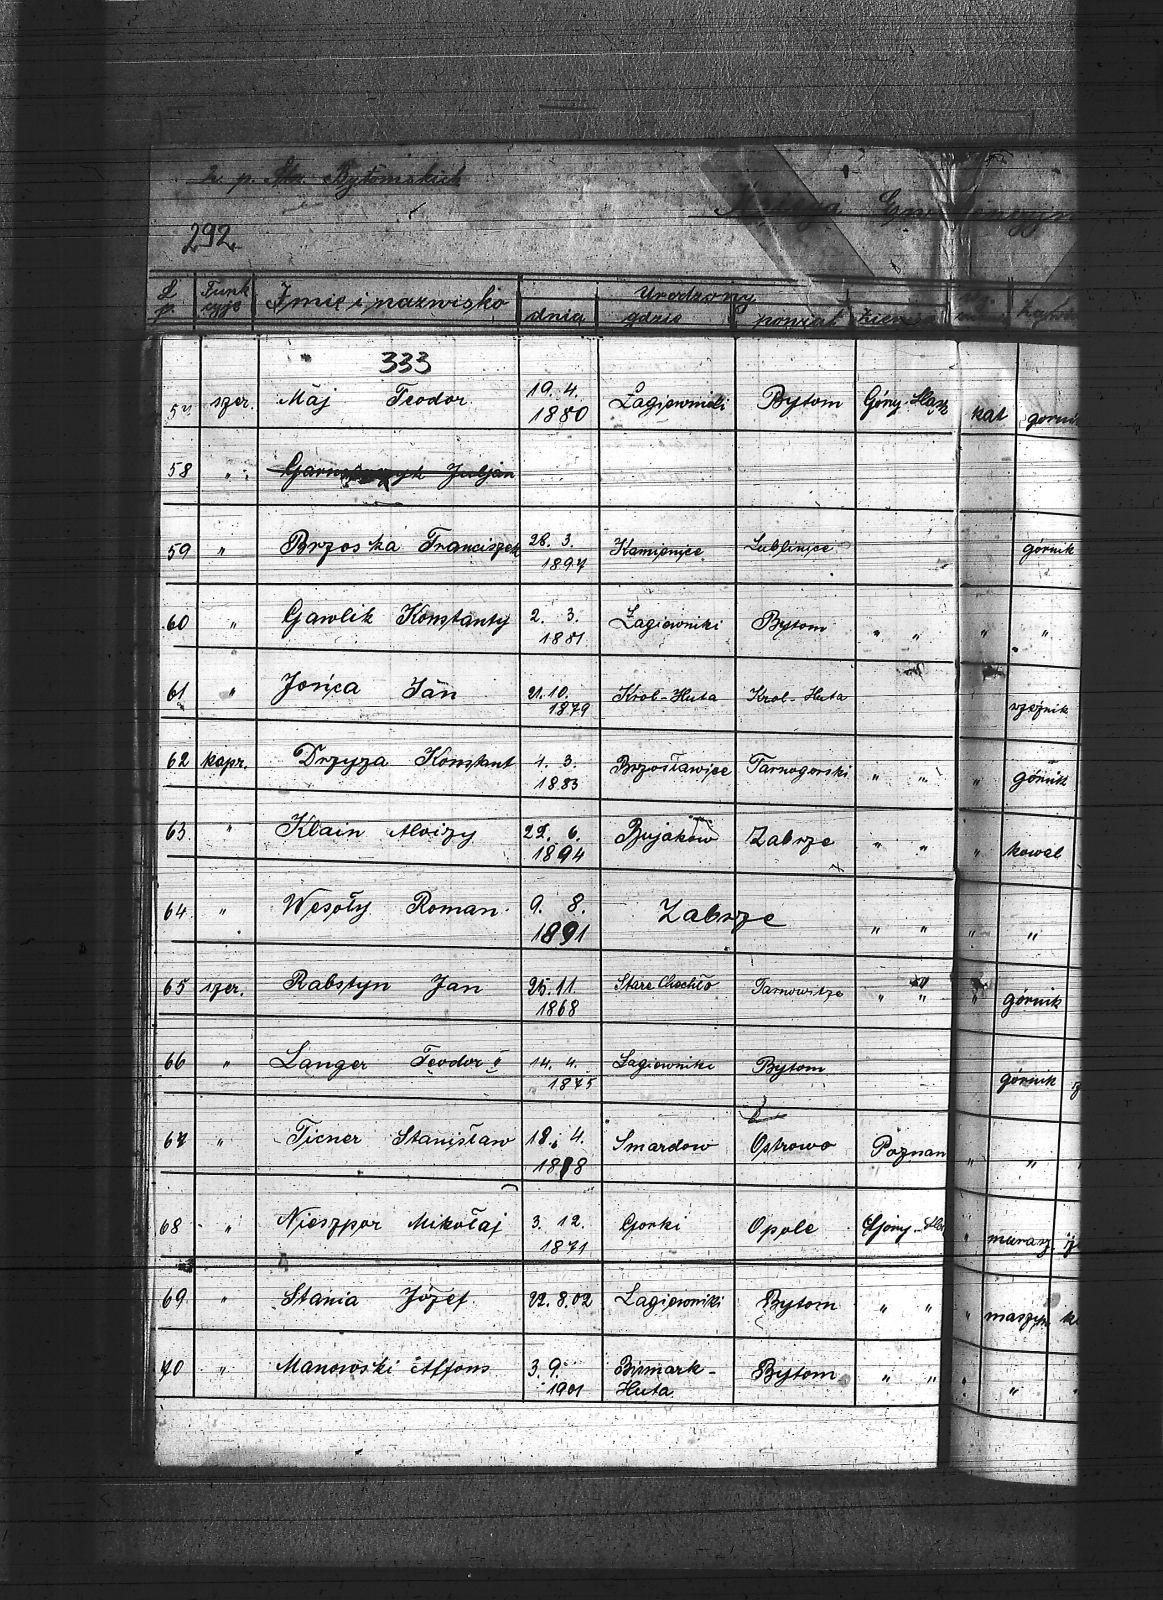 2. p. Bytomskich
Księga Ewidencyjn
292
L. p. Funkcyje Imię i nazwisko Urodzony
dnia gdzie powiat
333
57 szer. Maj Teodor 19. 4. 1880 Łagiewniki Bytom Góny-Sląsk kat gornik
58 " Julian
59 " Brzoska Franciszek 28. 3. 1897 Kamienice Lublinice górnik
60 " Gawlik Konstanty 2. 3. 1881 Łagiewniki Bytom " " " "
61 " Jońca Jan 21. 10. 1879 Krol-Huta Krol-Huta rzeźnik
62 kapr. Drzyza Konstant 4. 3. 1883 Brzosławice Tarnogorski " " " górnik
63 " Klain Aloizy 22. 6. 1894 Bujaków Zabrze " " " kowal
64 " Wesoły Roman 9. 8. 1891 Zabrze " " " "
65 szer. Rabstyn Jan 25. 11. 1868 Stare Chechło Tarnowitze " " " górnik
66 " Langer Teodor II 14. 4. 1875 Łagiewniki Bytom górnik
67 " Ticner Stanisław 18. 4. 1888 Smardow Ostrowo Poznan " "
68 " Nieszpor Mikołaj 3. 12. 1871 Gorki Opole Góny-Sla " muraz
69 " Stania Józef 22. 8. 02 Łagiewniki Bytom " " " maszyn
70 " Manowski Alfons 3. 9. 1901 Bismark-Huta Bytom " " " "